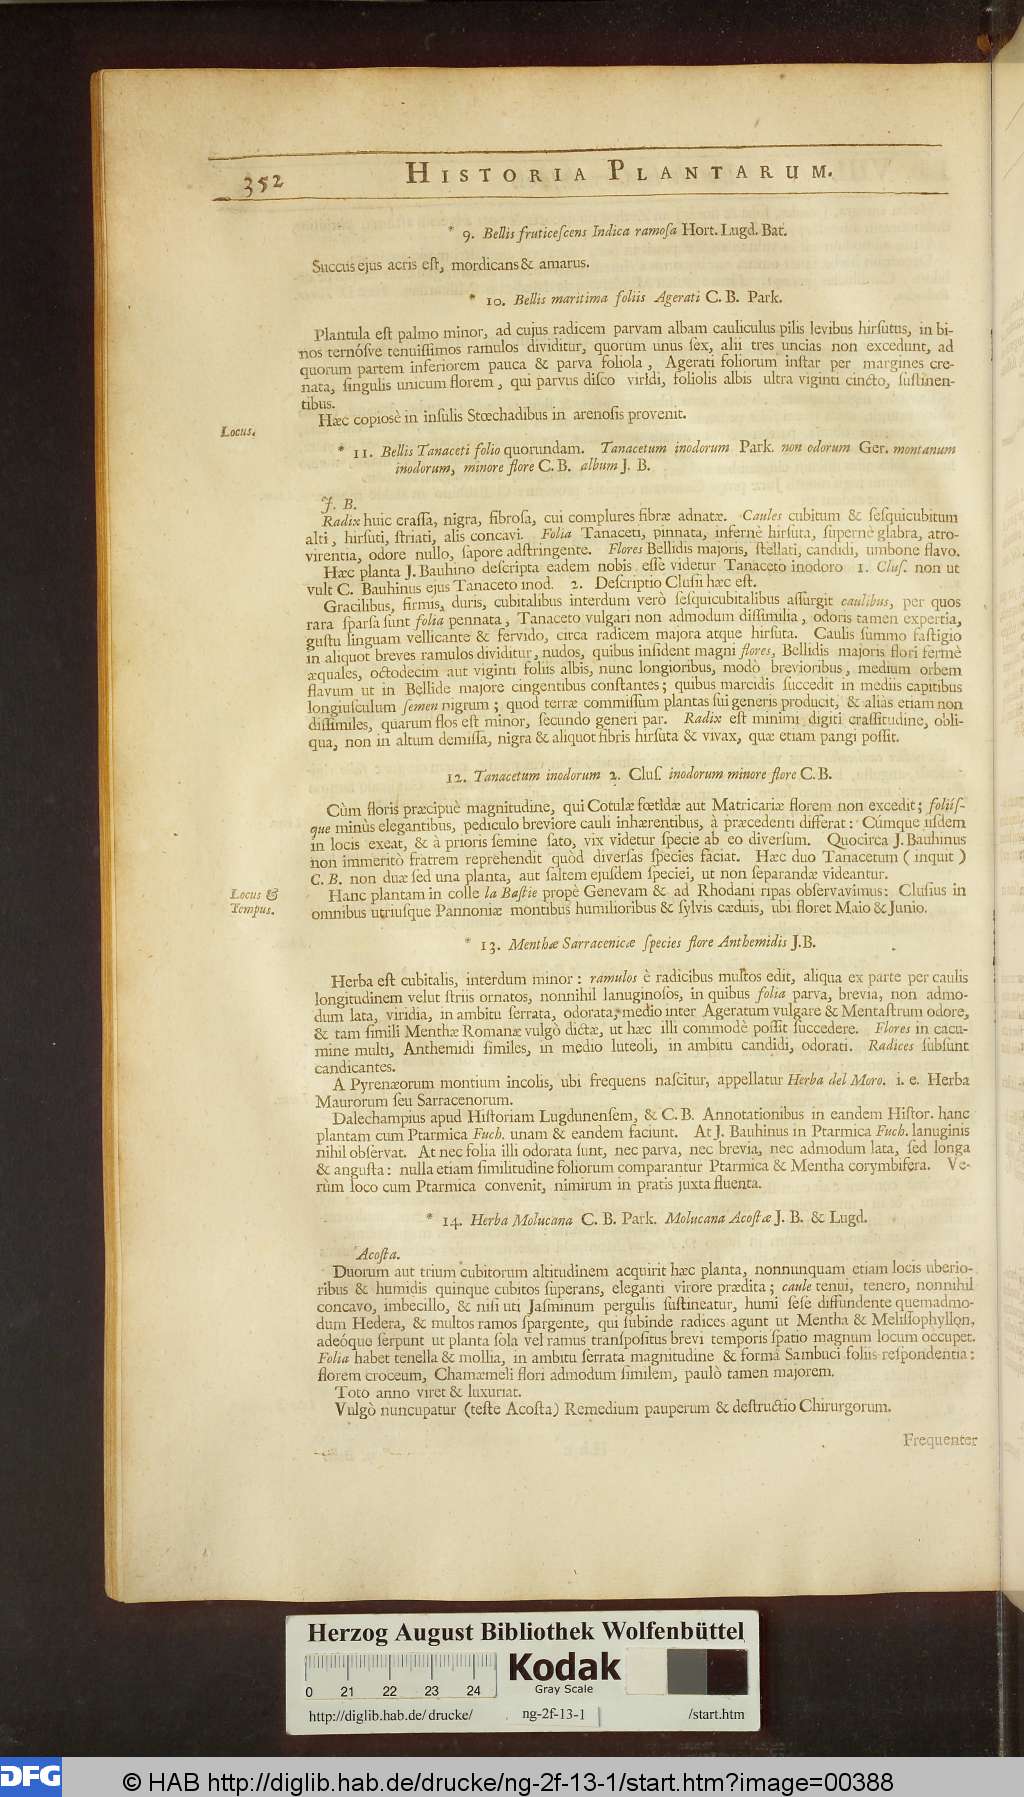 352
HISTORIA PLANTARUM.
* 9. Bellis fruticeſcens Indica ramoſa Hort. Lugd. Bat.
Succus ejus acris eſt, mordicans & amarus.
* 10. Bellis maritima foliis Agerati C. B. Park.
Plantula eſt palmo minor, ad cujus radicem parvam albam cauliculus pilis levibus hirſutus, in bi-
nos ternóſve tenuiſſimos ramulos dividitur, quorum unus ſex, alii tres uncias non excedunt, ad
quorum partem inferiorem pauca & parva foliola, Agerati foliorum inſtar per margines cre-
nata, ſingulis unicum florem, qui parvus diſco viridi, foliolis albis ultra viginti cincto, ſuſtinen-
tibus.
Hæc copiosè in inſulis Stœchadibus in arenoſis provenit.
Locus.
* 11. Bellis Tanaceti folio quorundam. Tanacetum inodorum Park. non odorum Ger. montanum
inodorum, minore flore C. B. album J. B.
J. B.
Radix huic craſſa, nigra, fibroſa, cui complures fibræ adnatæ. Caules cubitum & ſeſquicubitum
alti, hirſuti, ſtriati, alis concavi. Folia Tanaceti, pinnata, infernè hirſuta, ſupernè glabra, atro-
virentia, odore nullo, ſapore adſtringente. Flores Bellidis majoris, ſtellati, candidi, umbone flavo.
Hæc planta J. Bauhino deſcripta eadem nobis eſſe videtur Tanaceto inodoro 1. Cluſ. non ut
vult C. Bauhinus ejus Tanaceto inod. 2. Deſcriptio Cluſii hæc eſt.
Gracilibus, firmis, duris, cubitalibus interdum verò ſeſquicubitalibus aſſurgit caulibus, per quos
rara ſparſa ſunt folia pennata, Tanaceto vulgari non admodum diſſimilia, odoris tamen expertia,
guſtu linguam vellicante & fervido, circa radicem majora atque hirſuta. Caulis ſummo faſtigio
in aliquot breves ramulos dividitur, nudos, quibus inſident magni flores, Bellidis majoris flori fermè
æquales, octodecim aut viginti foliis albis, nunc longioribus, modò brevioribus, medium orbem
flavum ut in Bellide majore cingentibus conſtantes; quibus marcidis ſuccedit in mediis capitibus
longiuſculum ſemen nigrum; quod terræ commiſſum plantas ſui generis producit, & aliàs etiam non
diſſimiles, quarum flos eſt minor, ſecundo generi par. Radix eſt minimi digiti craſſitudine, obli-
qua, non in altum demiſſa, nigra & aliquot fibris hirſuta & vivax, quæ etiam pangi poſſit.
12. Tanacetum inodorum 2. Cluſ. inodorum minore flore C. B.
Cùm floris præcipuè magnitudine, qui Cotulæ fœtidæ aut Matricariæ florem non excedit; foliíſ-
que minùs elegantibus, pediculo breviore cauli inhærentibus, à præcedenti differat: Cúmque iiſdem
in locis exeat, & à prioris ſemine ſato, vix videtur ſpecie ab eo diverſum. Quocirca J. Bauhinus
non immeritò fratrem reprehendit quòd diverſas ſpecies faciat. Hæc duo Tanacetum (inquit)
C. B. non duæ ſed una planta, aut ſaltem ejuſdem ſpeciei, ut non ſeparandæ videantur.
Locus &
Tempus.
Hanc plantam in colle la Baſtie propè Genevam & ad Rhodani ripas obſervavimus: Cluſius in
omnibus utriuſque Pannoniæ montibus humilioribus & ſylvis cæduis, ubi floret Maio & Junio.
* 13. Menthæ Sarracenicæ ſpecies flore Anthemidis J. B.
Herba eſt cubitalis, interdum minor: ramulos è radicibus multos edit, aliqua ex parte per caulis
longitudinem velut ſtriis ornatos, nonnihil lanuginoſos, in quibus folia parva, brevia, non admo-
dum lata, viridia, in ambitu ſerrata, odorata, medio inter Ageratum vulgare & Mentaſtrum odore,
& tam ſimili Menthæ Romanæ vulgò dictæ, ut hæc illi commodè poſſit ſuccedere. Flores in cacu-
mine multi, Anthemidi ſimiles, in medio luteoli, in ambitu candidi, odorati. Radices ſubſunt
candicantes.
A Pyrenæorum montium incolis, ubi frequens naſcitur, appellatur Herba del Moro. i. e. Herba
Maurorum ſeu Sarracenorum.
Dalechampius apud Hiſtoriam Lugdunenſem, & C. B. Annotationibus in eandem Hiſtor. hanc
plantam cum Ptarmica Fuch. unam & eandem faciunt. At J. Bauhinus in Ptarmica Fuch. lanuginis
nihil obſervat. At nec folia illi odorata ſunt, nec parva, nec brevia, nec admodum lata, ſed longa
& anguſta: nulla etiam ſimilitudine foliorum comparantur Ptarmica & Mentha corymbifera. Ve-
rùm loco cum Ptarmica convenit, nimirum in pratis juxta fluenta.
* 14. Herba Molucana C. B. Park. Molucana Acoſtæ J. B. & Lugd.
Acoſta.
Duorum aut trium cubitorum altitudinem acquirit hæc planta, nonnunquam etiam locis uberio-
ribus & humidis quinque cubitos ſuperans, eleganti virore prædita; caule tenui, tenero, nonnihil
concavo, imbecillo, & niſi uti Jaſminum pergulis ſuſtineatur, humi ſeſe diffundente quemadmo-
dum Hedera, & multos ramos ſpargente, qui ſubinde radices agunt ut Mentha & Meliſſophyllon,
adeóque ſerpunt ut planta ſola vel ramus tranſpoſitus brevi temporis ſpatio magnum locum occupet.
Folia habet tenella & mollia, in ambitu ſerrata magnitudine & formâ Sambuci foliis reſpondentia:
florem croceum, Chamæmeli flori admodum ſimilem, paulò tamen majorem.
Toto anno viret & luxuriat.
Vulgò nuncupatur (teſte Acoſta) Remedium pauperum & deſtructio Chirurgorum.
Frequenter
Herzog August Bibliothek Wolfenbüttel
Kodak
Gray Scale
0 21 22 23 24
http://diglib.hab.de/drucke/ ng-2f-13-1 /start.htm
DFG
© HAB http://diglib.hab.de/drucke/ng-2f-13-1/start.htm?image=00388